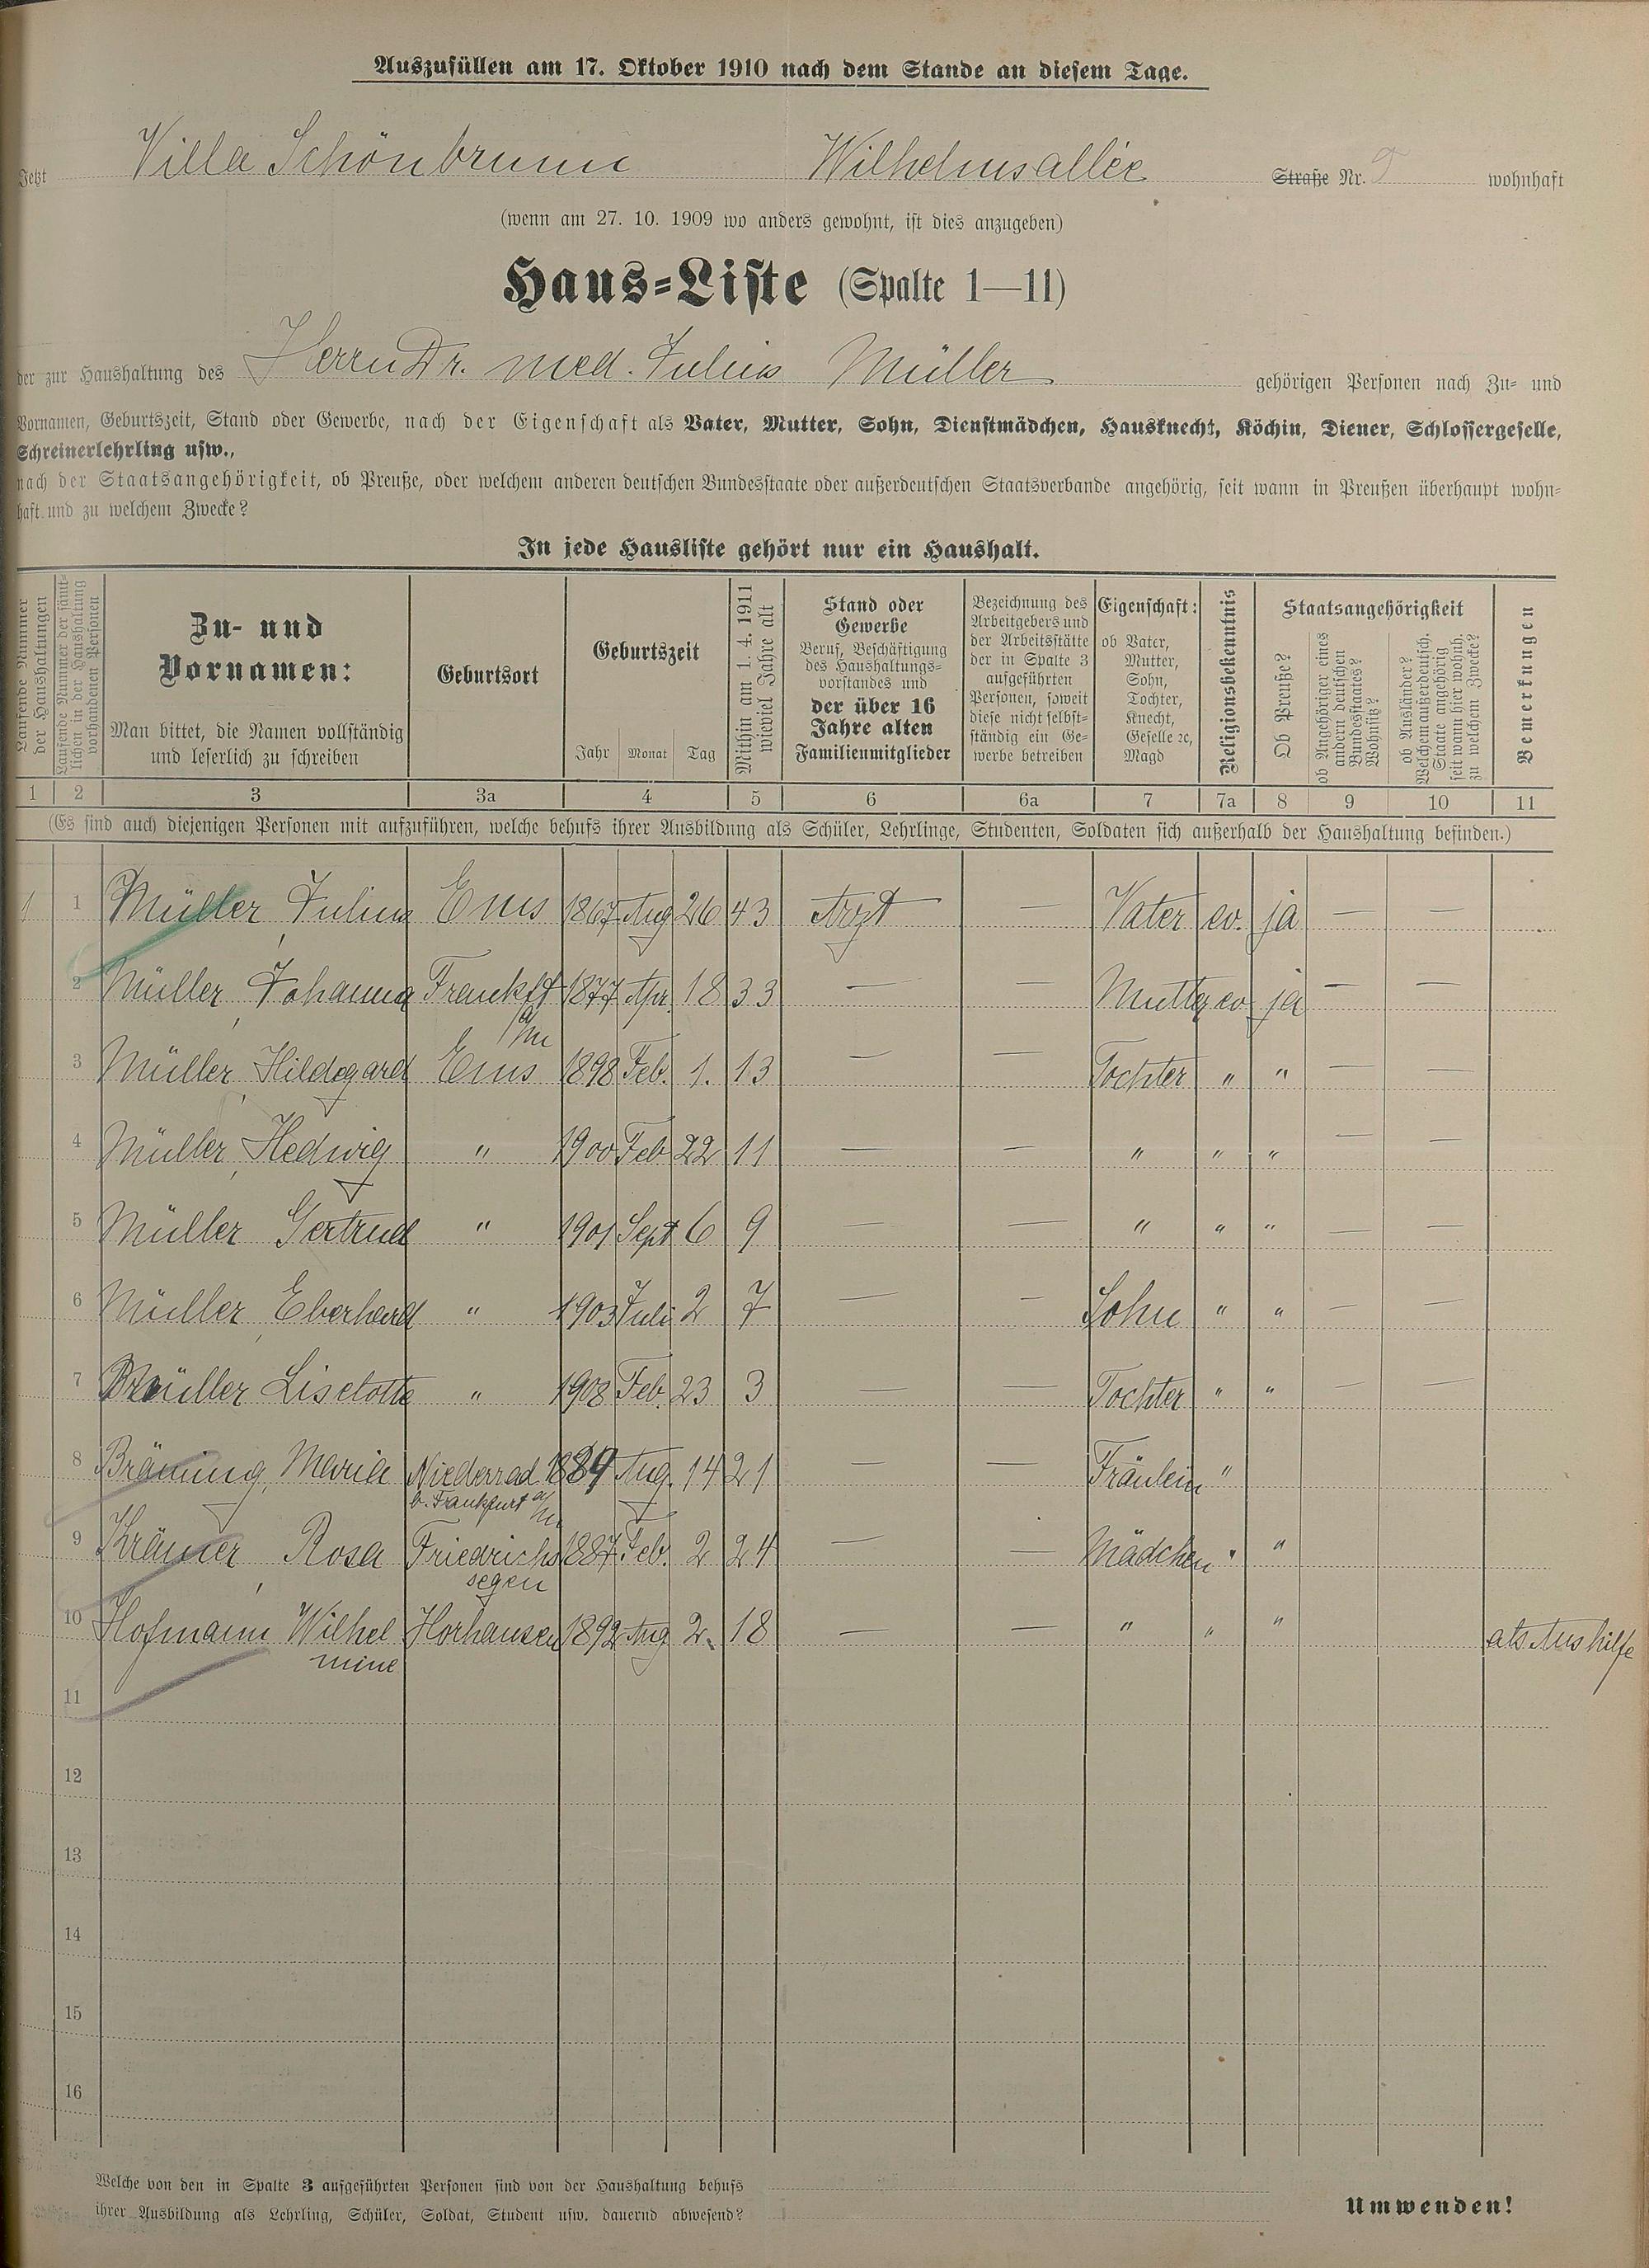 Auszufüllen am 17. Oktober 1910 nach dem Stande an diesem Tage.
Jetzt Villa Schönbrunn Wilhelmsallée Straße Nr. wohnhaft
(wenn am 27. 10. 1909 wo anders gewohnt, ist dies anzugeben)
Haus-Liste (Spalte 1—11)
der zur Haushaltung des Herrn Dr. med. Julius Müller gehörigen Personen nach Zu- und
Vornamen, Geburtszeit, Stand oder Gewerbe, nach der Eigenschaft als Vater, Mutter, Sohn, Dienstmädchen, Hausknecht, Köchin, Diener, Schlossergeselle,
Schreinerlehrling usw.,
nach der Staatsangehörigkeit, ob Preuße, oder welchem anderen deutschen Bundesstaate oder außerdeutschen Staatsverbande angehörig, seit wann in Preußen überhaupt wohn-
haft und zu welchem Zwecke?
In jede Hausliste gehört nur ein Haushalt.
Laufende Nummer
der Haushaltungen
Laufende Nummer der sämt-
lichen in der Haushaltung
vorhandenen Personen
Zu- und
Vornamen:
Man bittet, die Namen vollständig
und leserlich zu schreiben
Geburtsort
Geburtszeit
Jahr Monat Tag
Mithin am 1. 4. 1911
wieviel Jahre alt
Stand oder
Gewerbe
Beruf, Beschäftigung
des Haushaltungs-
vorstandes und
der über 16
Jahre alten
Familienmitglieder
Bezeichnung des
Arbeitgebers und
der Arbeitsstätte
der in Spalte 3
aufgeführten
Personen, soweit
diese nicht selbst-
ständig ein Ge-
werbe betreiben
Eigenschaft:
ob Vater,
Mutter,
Sohn,
Tochter,
Knecht,
Geselle ꝛc,
Magd
Religionsbekenntnis
Staatsangehörigkeit
Ob Preuße?
ob Angehöriger eines
andern deutschen
Bundesstaates?
Wohnsitz?
ob Ausländer?
Welchem außerdeutsch.
Staate angehörig
seit wann hier wohnh.
zu welchem Zwecke?
Bemerkungen
1 2 3 3a 4 5 6 6a 7 7a 8 9 10 11
(Es sind auch diejenigen Personen mit aufzuführen, welche behufs ihrer Ausbildung als Schüler, Lehrlinge, Studenten, Soldaten sich außerhalb der Haushaltung befinden.)
1 1 Müller, Julius Ems 1867 Aug 26 43 Arzt — Vater ev. ja — —
2 Müller, Johanna Frankft 1877 Apr. 18 33 — — Mutter ev ja — —
a/M
3 Müller, Hildegard Ems 1898 Feb. 1. 13 — — Tochter " " — —
4 Müller, Hedwig " 1900 Feb 22 11 — — " " " — —
5 Müller Gertrud " 1901 Sept 6 9 — — " " " — —
6 Müller, Eberhard " 1903 Juli 2 7 — — Sohn " " — —
7 Müller Liselotte " 1908 Feb. 23 3 — — Tochter " " — —
8 Bräuning, Maria Niederrad 1889 Aug. 14 21 — — Fräulein "
b. Frankfurt a/M
9 Krämer, Rosa Friedrichs 1887 Feb. 2 24 — — Mädchen " "
segen
10 Hofmann Wilhel Horhausen 1892 Aug 2. 18 — — " " " als Aushilfe
mine
11
12
13
14
15
16
Welche von den in Spalte 3 aufgeführten Personen sind von der Haushaltung behufs
ihrer Ausbildung als Lehrling, Schüler, Soldat, Student usw. dauernd abwesend?
Umwenden!